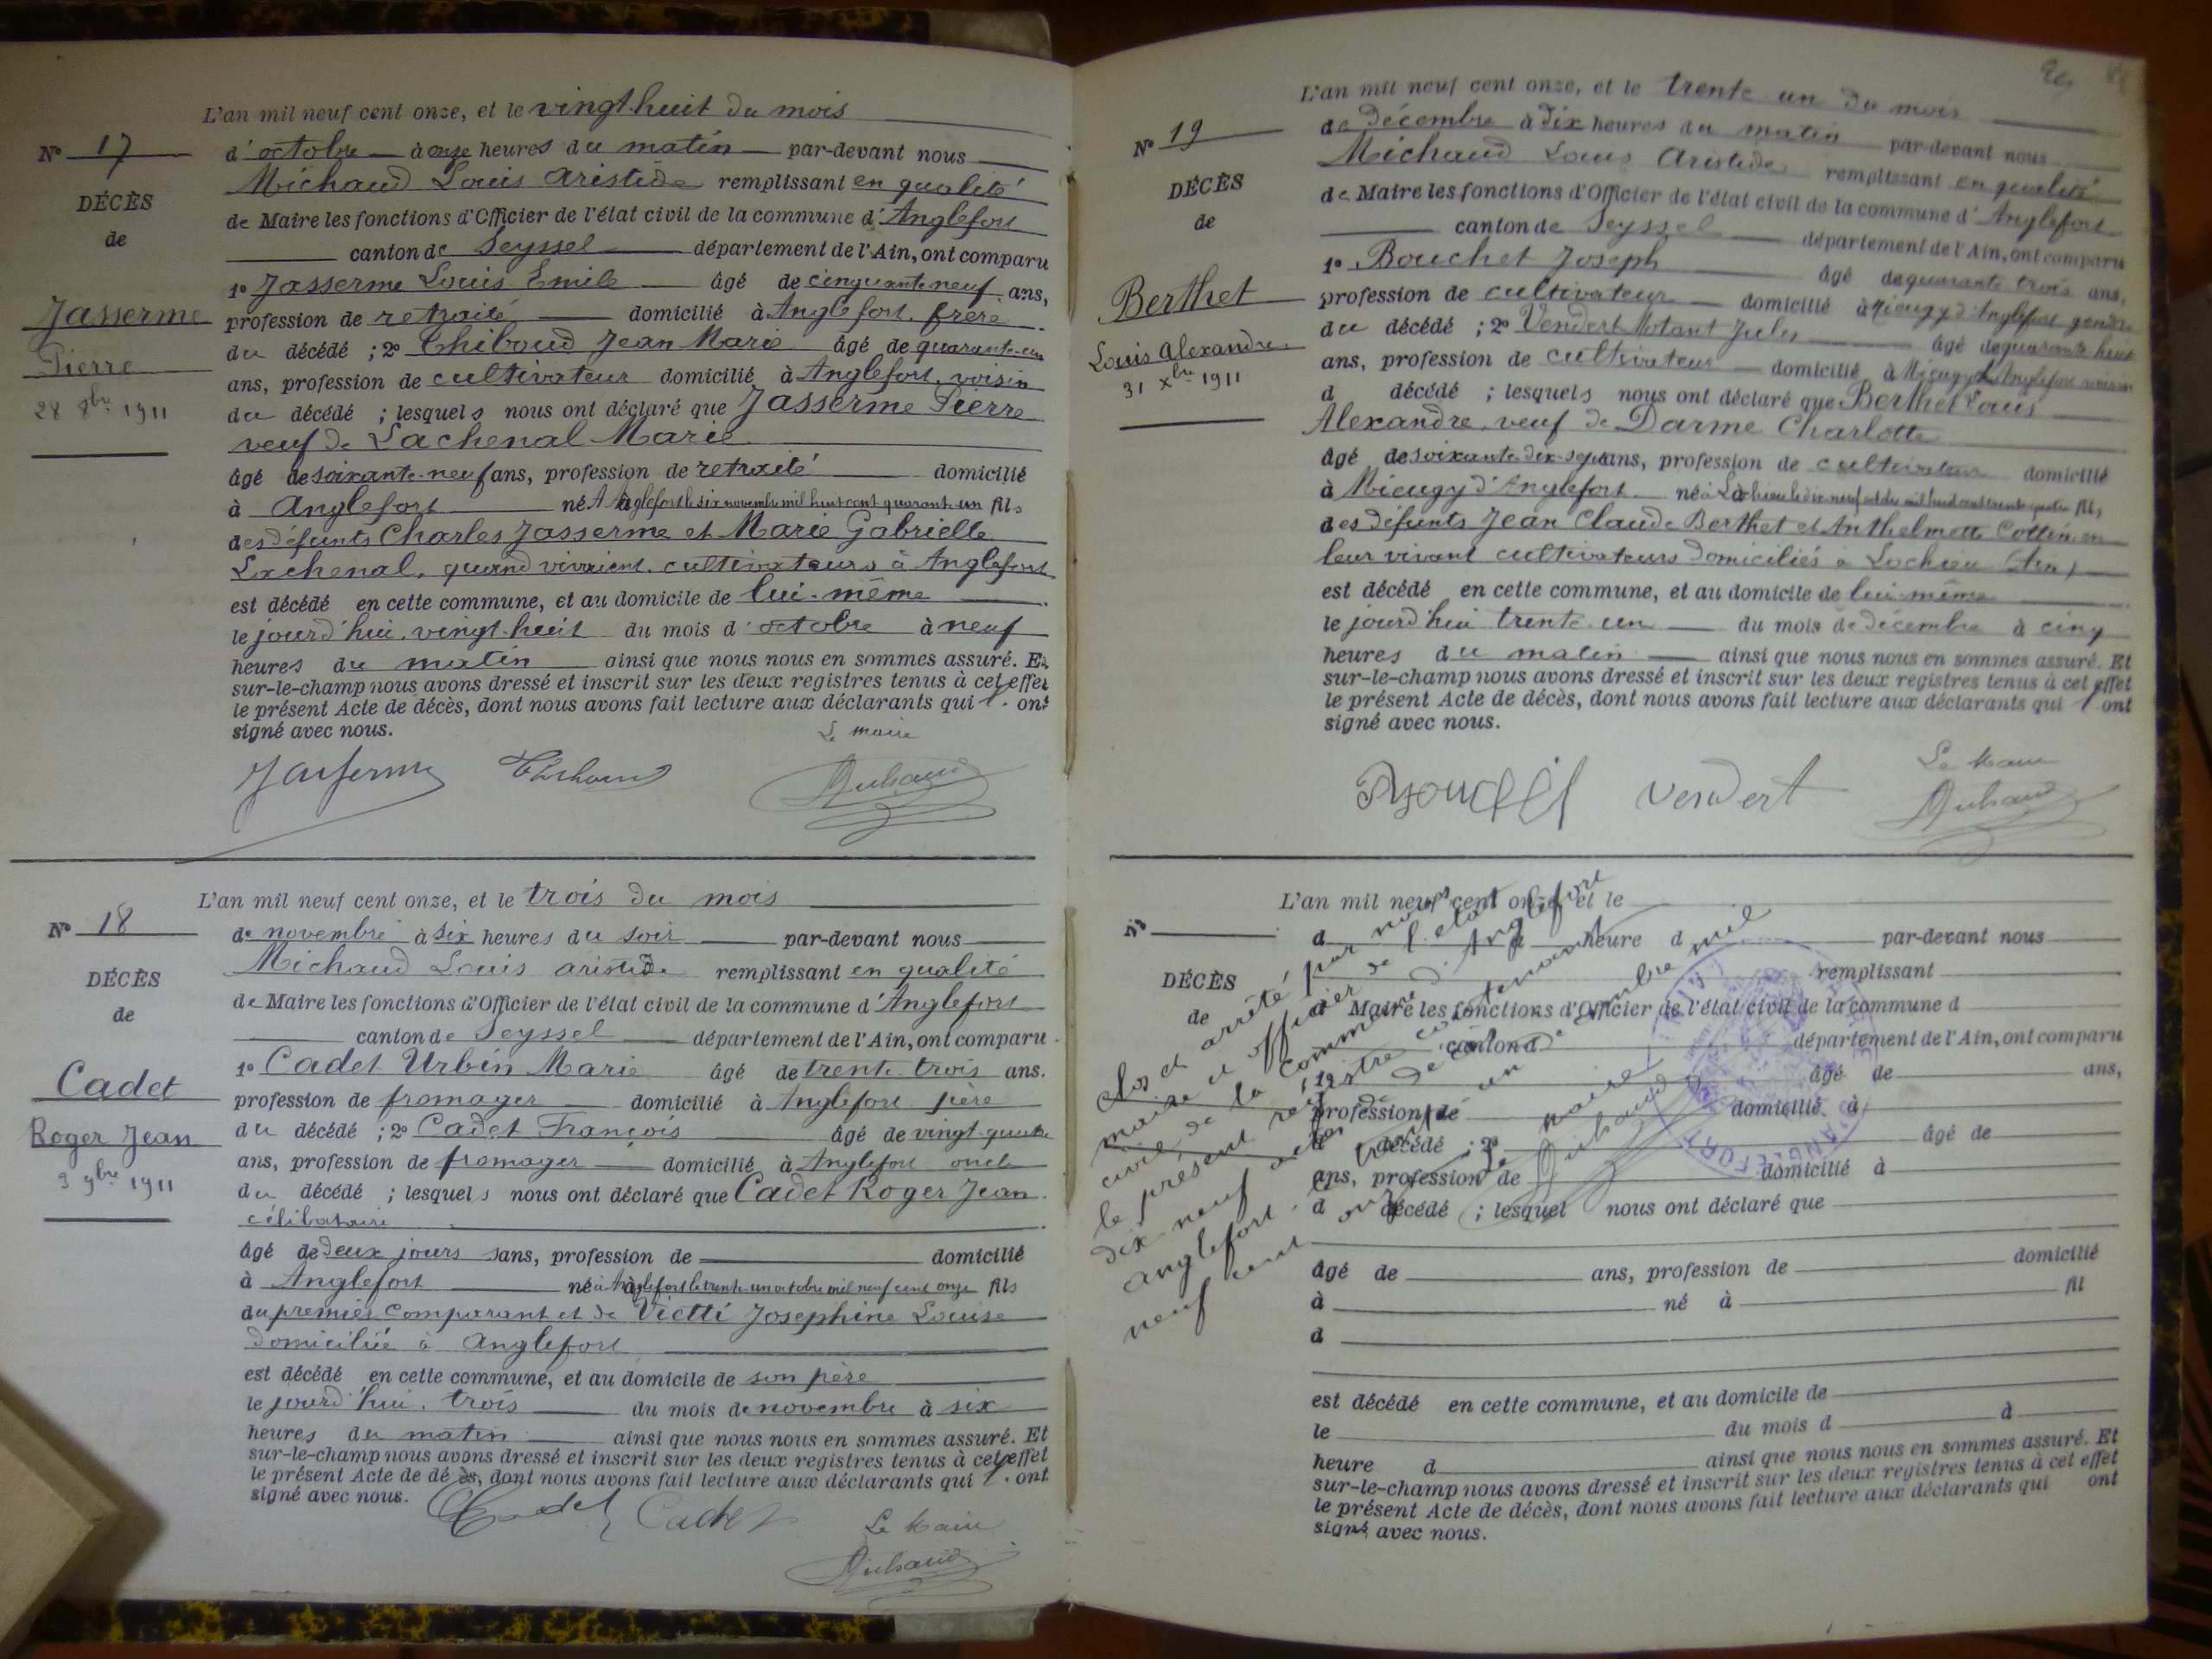 L'an mil neuf cent onze, et le vingt-huit du mois
N° 17
d'octobre à onze heures du matin par-devant nous
Michaud Louis Aristide remplissant en qualité
DÉCÈS
de Maire les fonctions d'Officier de l'état civil de la commune d'Anglefort
de
canton de Seyssel département de l'Ain, ont comparu
1° Jasserme Louis Emile âgé de cinquante neuf ans,
Jasserme
profession de retraité domicilié à Anglefort. frère
du décédé ; 2° Thiboud Jean Marie âgé de quarante-un
Pierre
ans, profession de cultivateur domicilié à Anglefort, voisin
28 8bre 1911
du décédé ; lesquels nous ont déclaré que Jasserme Pierre
veuf de Lachenal Marie
âgé de soixante-neuf ans, profession de retraité domicilié
à Anglefort né à Anglefort le six novembre mil huit cent quarante un fils
des défunts Charles Jasserme et Marie Gabrielle
Lachenal, quand vivaient cultivateurs à Anglefort
est décédé en cette commune, et au domicile de lui-même
le jourd'hui vingt-huit du mois d'octobre à neuf
heures du matin ainsi que nous nous en sommes assuré. Et
sur-le-champ nous avons dressé et inscrit sur les deux registres tenus à cet effet
le présent Acte de décès, dont nous avons fait lecture aux déclarants qui ont
signé avec nous.
Le maire
Jasserme Thiboud Michaud
L'an mil neuf cent onze, et le trois du mois
N° 18
de novembre à six heures du soir par-devant nous
Michaud Louis aristide remplissant en qualité
DÉCÈS
de Maire les fonctions d'Officier de l'état civil de la commune d'Anglefort
de
canton de Seyssel département de l'Ain, ont comparu
1° Cadet Urbin Marie âgé de trente-trois ans.
Cadet
profession de fromager domicilié à Anglefort père
Roger Jean
du décédé ; 2° Cadet François âgé de vingt-quatre
ans, profession de fromager domicilié à Anglefort oncle
3 9bre 1911
du décédé ; lesquels nous ont déclaré que Cadet Roger Jean
célibataire
âgé de deux jours sans, profession de domicilié
à Anglefort né à Anglefort le trente un octobre mil neuf cent onze fils
du premier comparant et de Vietti Josephine Louise
domiciliée à Anglefort
est décédé en cette commune, et au domicile de son père
le jourd'hui. trois du mois de novembre à six
heures du matin ainsi que nous nous en sommes assuré. Et
sur-le-champ nous avons dressé et inscrit sur les deux registres tenus à cet effet
le présent Acte de décès, dont nous avons fait lecture aux déclarants qui ont
signé avec nous.
Cadet Cadet
Le Maire
Michaud
L'an mil neuf cent onze, et le trente-un du mois
N° 19
de décembre à dix heures du matin par-devant nous
Michaud Louis Aristide remplissant en qualité
DÉCÈS
de Maire les fonctions d'Officier de l'état civil de la commune d'Anglefort
de
canton de Seyssel département de l'Ain, ont comparu
1° Bouchet Joseph âgé de quarante trois ans,
Berthet
profession de cultivateur domicilié à Mieugy d'Anglefort gendre
du décédé ; 2° Vendert Jules âgé de quarante-huit
Louis Alexandre
ans, profession de cultivateur domicilié à Mieugy d'Anglefort voisin
31 xbre 1911
d décédé ; lesquels nous ont déclaré que Berthet Louis
Alexandre, veuf de Darme Charlotte
âgé de soixante-dix-sept ans, profession de cultivateur domicilié
à Mieugy d'Anglefort né à Lochieu le dix neuf mil huit cent trente quatre fils
des défunts Jean Claude Berthet et Anthelmette Cottin en
leur vivant cultivateurs domiciliés à Lochieu (Ain)
est décédé en cette commune, et au domicile de lui-même
le jourd'hui trente-un du mois de décembre à cinq
heures du matin ainsi que nous nous en sommes assuré. Et
sur-le-champ nous avons dressé et inscrit sur les deux registres tenus à cet effet
le présent Acte de décès, dont nous avons fait lecture aux déclarants qui ont
signé avec nous.
Le Maire
Bouchet Vendert Michaud
L'an mil neuf cent onze, et le
N°
d à heure d par-devant nous
remplissant
DÉCÈS
d Maire les fonctions d'Officier de l'état civil de la commune d
de
canton d département de l'Ain, ont comparu
1° âgé de ans,
profession de domicilié à
d décédé ; 2° âgé de
ans, profession de domicilié à
d décédé ; lesquel nous ont déclaré que
âgé de ans, profession de domicilié
à né à fil
d
est décédé en cette commune, et au domicile de
le du mois d à
heure d ainsi que nous nous en sommes assuré. Et
sur-le-champ nous avons dressé et inscrit sur les deux registres tenus à cet effet
le présent Acte de décès, dont nous avons fait lecture aux déclarants qui ont
signé avec nous.
Clos et arrêté par nous
maire et officier de l'état
civil de la commune d'Anglefort
le présent registre contenant
dix neuf actes de décès
anglefort. le trente un décembre mil
neuf cent onze
Le maire
Michaud
MAIRIE D'ANGLEFORT